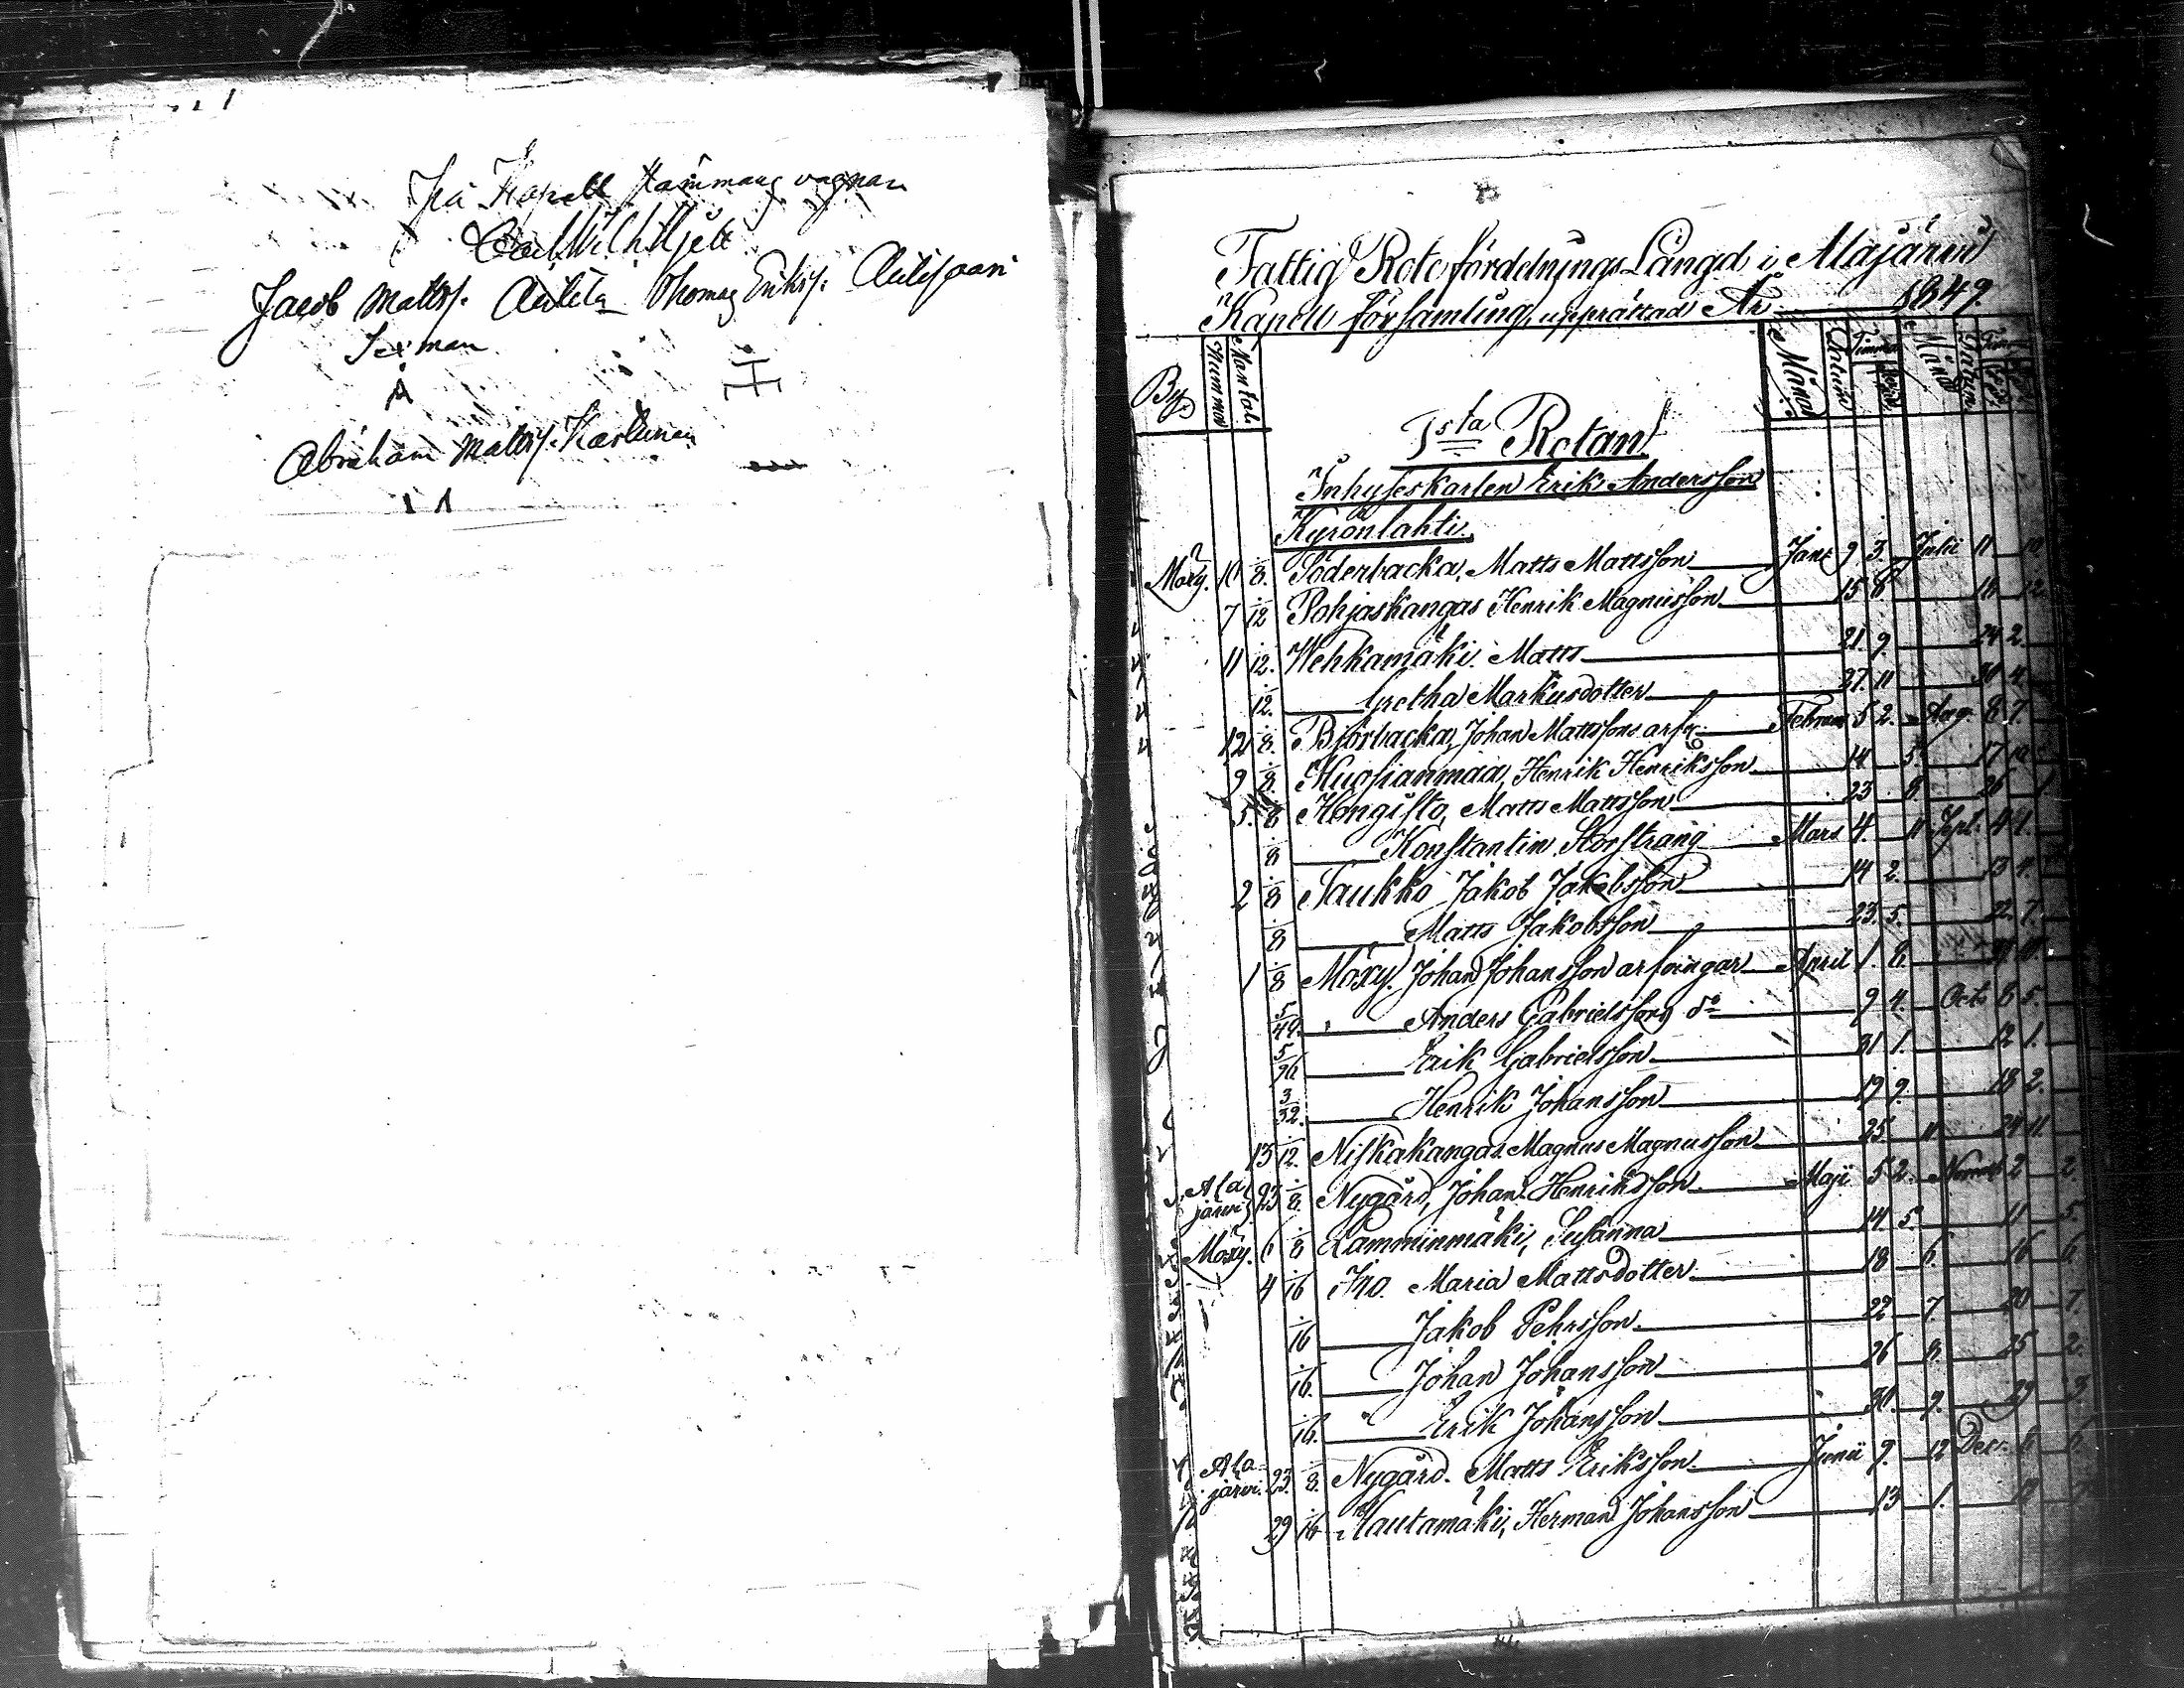 på Kapell stämmans vägnar
Carl Wilh Kjell
Jacob Matts/. Autila Thomas Eriks/. Autisaari
Sexman
Abraham Matts/. Karlunen
Fattig Rotefördelnings Längd i Alajärwi
Kapell församling, upprättad År 1849.
By. Nummer Mantal. Månad Datum Timma Månd Datum Tim
1sta Rotan
Inhyseskarlen Erik Andersson
Kyrönlahti.
Möxy. 10 1/8. Söderbacka, Matts Mattsson Janr 9 3. Julii 11 10
7 1/12 Pohjaskangas Henrik Magnusson 15 6 18 12
11 1/12. Wehkamäki. Matts 21 9. 24 2
1/12. Gretha Markusdotter 27. 11 30 4
12 1/8. Björbacka, Johan Mattssons arfv. Februar 5 2. Aug. 8 7.
9 1/8. Huosianmaa, Henrik Henriksson 14 5. 17 10
5. 1/8 Hongisto, Matts Mattsson 23 8. 26 1
1/8 Konstantin Storstrang Mars 4. 11 Sept. 4 1.
2 1/8 Taukko Jakob Jakobsson 14 2. 13 1.
1/8 Matts Jakobsson 23. 5. 22. 7.
1 1/8 Möxy. Johan Johansson arfvingar April 1. 8.
5/49. Anders Gabrielsson do 9 4. Octo 8 5.
5/96 Erik Gabrielsson 1. 12 1.
3/32. Henrik Johansson 19 9. 18 2.
13 1/12. Niskakangas. Magnus Magnusson 25 11 24 11.
Alajärwi 23 1/8. Nygård, Johan Henriksson Maji 5 2. 2 2.
Möxy. 6 1/8 Lamminmäki, Susanna 14 5. 11 5.
4 1/16 Iso. Maria Mattsdotter. 18 6. 16 6
1/16 Jakob Pehrsson. 22 7. 20 7.
1/16. Johan Johansson 26 8. 25 2.
1/16. " Erik Johansson 30. 9. 29 3.
Alajärwi. 23. 1/8. Nygård. Matts Eriksson. Junii 9. 12 Decr. 6 6.
29 1/16 Rautamäki, Herman Johansson 13 1. 12